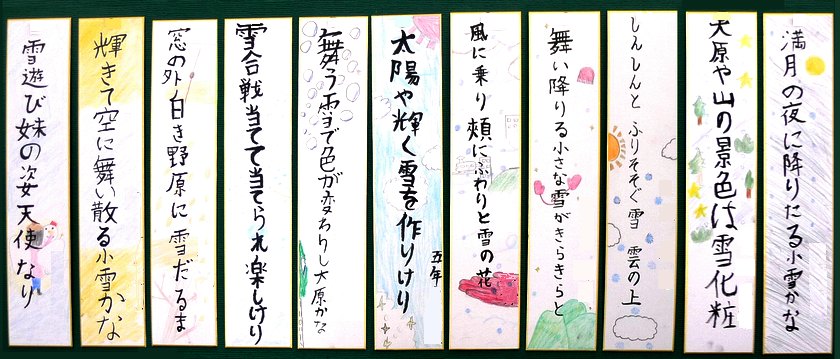 満月の夜に降りたる小雪かな
大原や山の景色は雪化粧
しんしんと ふりそそぐ雪 雲の上
舞い降りる小さな雪がきらきらと
風に乗り 頬にふわりと雪の花
太陽や輝く雪を作りけり
五年
舞う雪で色が変わりし大原かな
雪合戦当てて当てられ楽しけり
窓の外白き野原に雪だるま
輝きて空に舞い散る小雪かな
雪遊び妹の姿天使なり